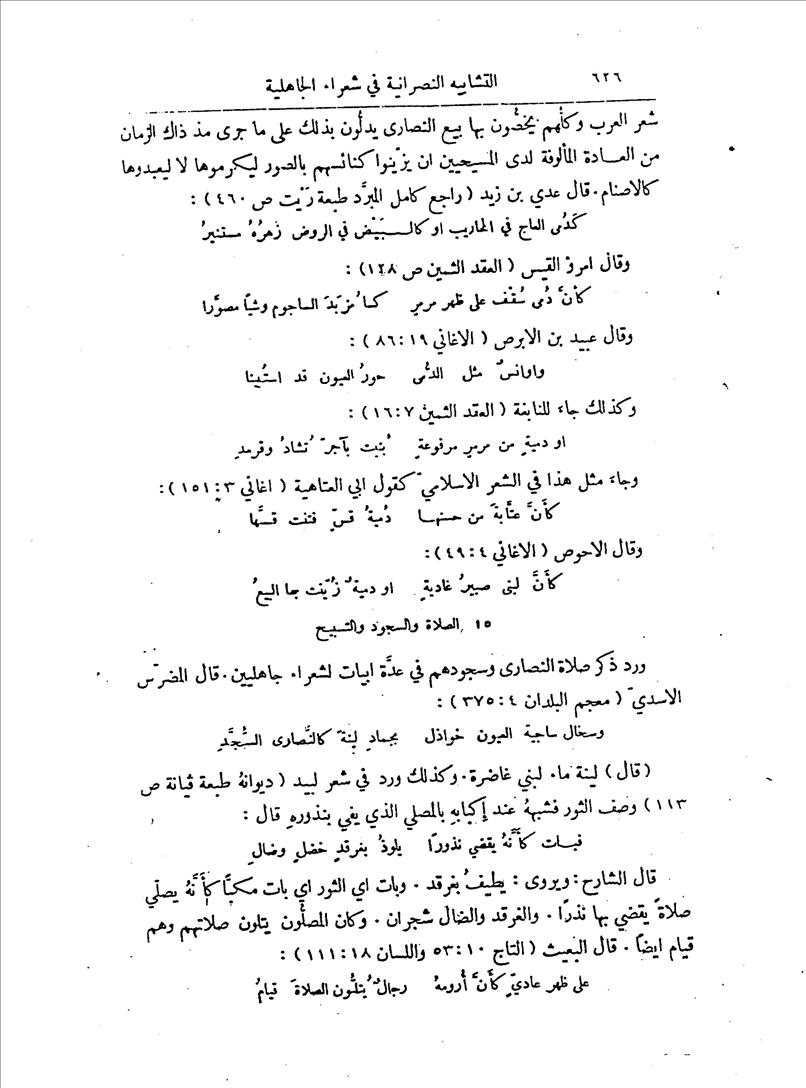 ٦٢٦ التشابيه النصرانية في شعراء الجاهلية
شعر العرب وكأنهم يخصُّون بها بيع النصارى يدلُّون بذلك على ما جرى مذ ذاك الزمان
من العادة المألوفة لدى المسيحيين ان يزيّنوا كنائسهم بالصور ليكرموها لا ليعبدوها
كالاصنام . قال عدي بن زيد ( راجع كامل المبرَّد طبعة ريّت ص ٤٦٠ ) :
كدُمى العاج في المحاريب او كالـبَيْض في الروض زهرُهُ مستنيرُ
وقال امرؤ القيس ( العقد الثمين ص ١٢٨ ) :
كأنَّ دُمى سُقْف على ظهر مرمرٍ كسا مُزبَدَ الساجوم وشياً مصوَّرا
وقال عبيد بن الابرص ( الاغاني ١٩ : ٨٦ ) :
واوانسٌ مثل الدمُّى حورُ العيون قد استُبينا
وكذلك جاء للنابغة ( العقد الثمين ٧ : ١٦ ) :
او دميةٍ من مرمرٍ مرفوعةٍ بُنيت بآجرّ تُشادُ وقرمدِ
وجاء مثل هذا في الشعر الاسلاميّ كقول ابي العتاهية ( اغاني ٣ : ١٥١ ) :
كأنَّ عتَّابةَ من حسنها دُميةُ قسٍّ فتنت قسَّها
وقال الاحوص ( الاغاني ٤ : ٤٩ ) :
كأنَّ لبنى صبيرُ غاديةٍ او دميةٌ زُيّنت بها البيعُ
١٥ الصلاة والسجود والتسبيح
ورد ذكر صلاة النصارى وسجودهم في عدَّة ابيات لشعراء جاهليين . قال المضرّس
الاسديّ ( معجم البلدان ٤ : ٣٧٥ ) :
وسخال ساجية العيون خواذل بجمادِ لِينةَ كالنَّصارى السُّجَّدِ
( قال ) لينة ماء لبني غاضرة . وكذلك ورد في شعر لبيد ( ديوانهُ طبعة ڤيانة ص
١١٣ ) وصف الثور فشبههُ عند إكبابهِ بالمصلي الذي يفي بنذورهِ قال :
فبات كأنَّهُ يقضي نذورًا يلوذُ بغرقدٍ خضلٍ وضالِ
قال الشارح : ويروى : يطيفُ بغرقد . وبات اي الثور اي بات مكبًّا كأَنَّهُ يصلّي
صلاةً يقضي بها نذرًا . والغرقد والضال شجران . وكان المصلُّون يتلون صلاتهم وهم
قيام ايضاً . قال البعيث ( التاج ١٠ : ٥٣ واللسان ١٨ : ١١١ ) :
على ظهر عاديٍّ كأنَّ أُرومهُ رجالٌ يُتلُّون الصلاةَ قيامُ